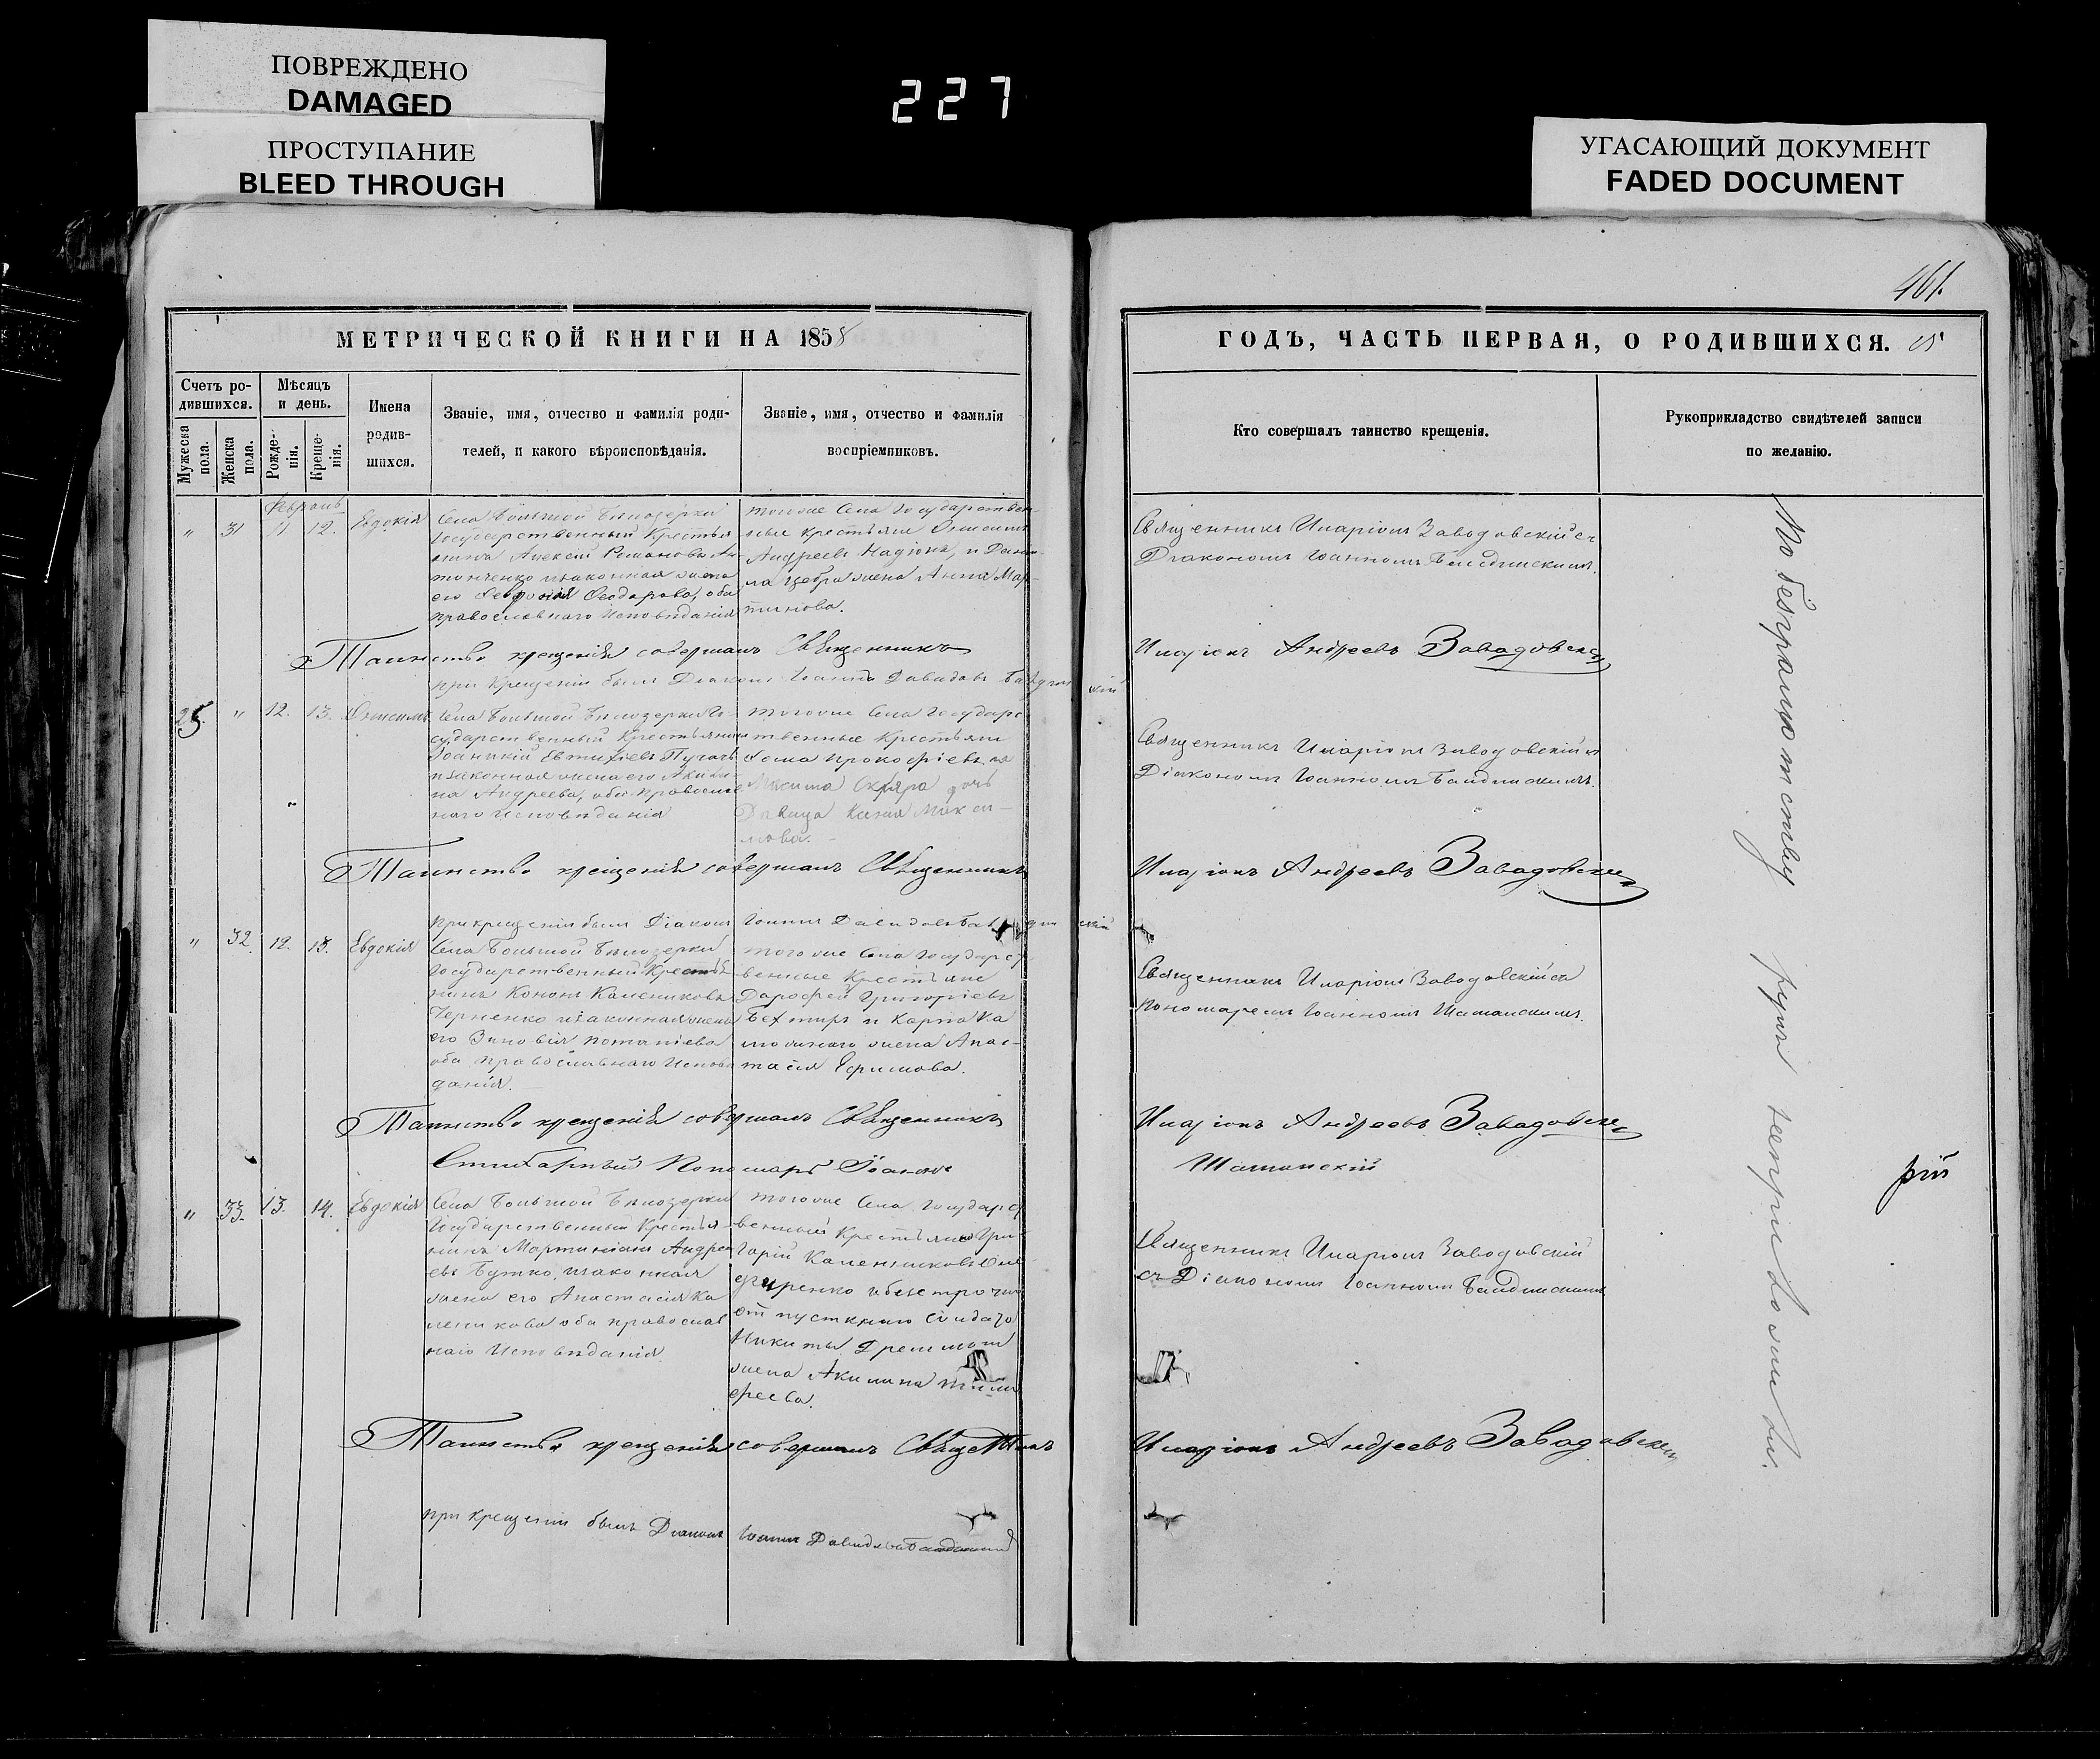 ПОВРЕЖДЕНО
DAMAGED
ПРОСТУПАНИЕ
BLEED THROUGH
227
УГАСАЮЩИЙ ДОКУМЕНТ
FADED DOCUMENT
461.
МЕТРИЧЕСКОЙ КНИГИ НА 1858
ГОДЪ, ЧАСТЬ ПЕРВАЯ, О РОДИВШИХСЯ.
Счетъ ро-
дившихся.
Мужеска
пола.
Женска
пола.
Мѣсяцъ
и день.
Рожде-
нія.
Креще-
нія.
Имена
родив-
шихся.
Званіе, имя, отчество и фамилія роди-
телей, и какого вѣроисповѣданія.
Званіе, имя, отчество и фамилія
воспріемниковъ.
Кто совершалъ таинство крещенія.
Рукоприкладство свидѣтелей записи
по желанію.
Февраль
" 31 11 12. Евдокія
Села Большой Бѣлозерки
Государственный Крестья
нинъ Алексій Романовъ Ан
тонченко и законная жена
его Феодорова, оба
православнаго Исповѣданія
тогоже Села Государствен
ные крестьяне
Андреевъ и Дани
ла жена Анна Мар
тинова.
Священникъ Иларіонъ Заводовскій съ
Діакономъ Іоанномъ
Таинство крещенія совершалъ Священникъ
Иларіонъ Андреевъ Заводовскій
при Крещеніи былъ Діаконъ Іоаннъ Давидовъ
25. " 12. 13. Онисимъ
Села Большой Бѣлозерки Го
сударственный Крестьянинъ
Іоаникій Евтихіевъ Пугачъ
и законная жена его Акили
на Андреева, оба православ
наго Исповѣданія
тогоже Села Государс
твенные Крестьяне
Фома Прокофіевъ
дочь
Дѣвица Ксенія Макси
мова.
Священникъ Иларіонъ Заводовскій съ
Діакономъ Іоанномъ
Таинство крещенія совершалъ Священникъ
Иларіонъ Андреевъ Заводовскій
При крещеніи былъ Діаконъ Іоаннъ Давидовъ
" 32. 12. 13. Евдокія
Села Большой Бѣлозерки
Государственный Крестья
нинъ Кононъ Калениковъ
Черненко и законная жена
его Зиновія Потапіева
оба православнаго Исповѣ
данія.
тогоже Села Государст
венные Крестьяне
Дорофей Григоріевъ
Бехтиръ и Карпа Ка
жена Анас
тасія Ефимова.
Священникъ Иларіонъ Заводовскій съ
Пономаремъ Іоанномъ Шаманскимъ
Таинство крещенія совершалъ Священникъ
Иларіонъ Андреевъ Заводовскій
Стихарный Пономарь Іоаннъ
Шаманскій
" 33. 13. 14. Евдокія
Села Большой Бѣлозерки
Государственный Крестья
нинъ Мартиніанъ Андре
евъ Бутко, и законная
жена его Анастасія Ка
леникова оба православ
наго Исповѣданія
тогоже Села Государст
венный Крестьянинъ Гри
горій Калениковъ
и безсрочно
отпускнаго Солдата
Никиты
жена Акилина Тимо
феева.
Священникъ Иларіонъ Заводовскій
съ Діакономъ Іоанномъ
Таинство крещенія совершалъ Священникъ
Иларіонъ Андреевъ Заводовскій
при крещеніи былъ Діаконъ Іоаннъ Давидовъ
По безграмотству рукъ неприложили.
рій